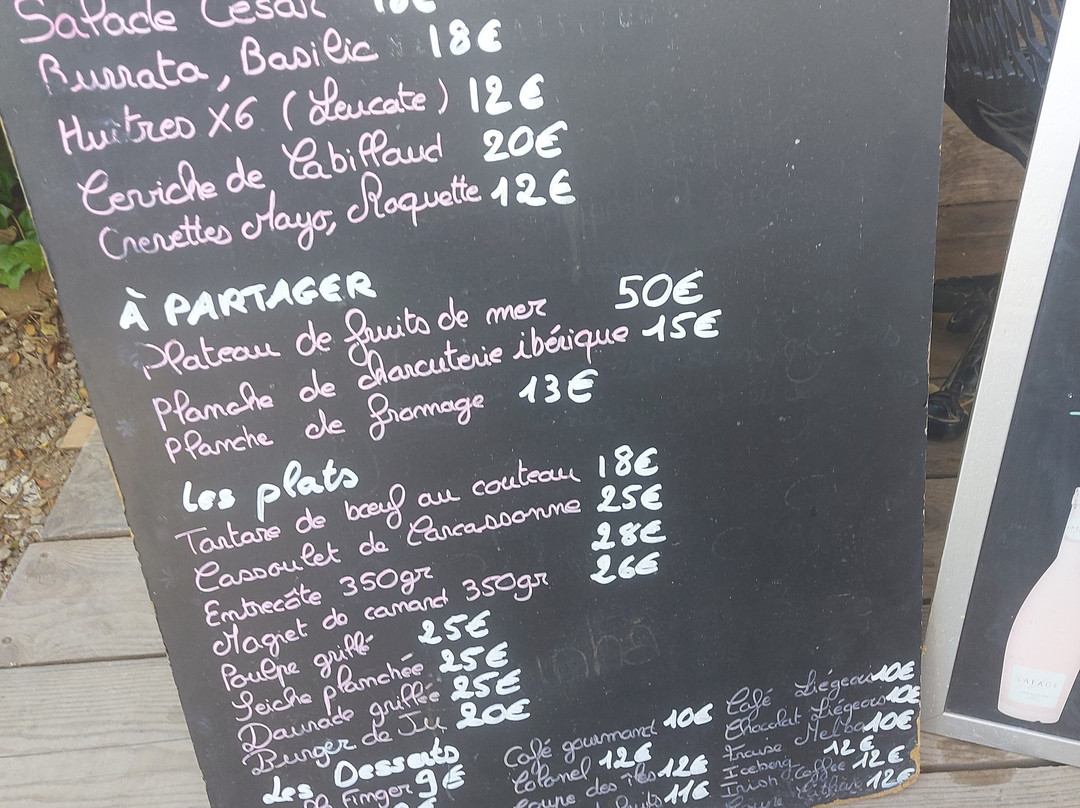 Salade César
Burrata, Basilic 18€
Huîtres X6 (Leucate) 12€
Ceviche de Cabillaud 20€
Crevettes Mayo, Roquette 12€
À PARTAGER
Plateau de fruits de mer 50€
Planche de charcuterie ibérique 15€
Planche de fromage 13€
Les plats
Tartare de bœuf au couteau 18€
Cassoulet de Carcassonne 25€
Entrecôte 350gr 28€
Magret de canard 350gr 26€
Poulpe grillé 25€
Seiche planchée 25€
Daurade grillée 25€
Burger de Ju 20€
Les Desserts
Finger 9€
Café gourmand 10€
Colonel 12€
Coupe des îles 12€
fruits 11€
Café Liégeois 10€
Chocolat Liégeois 10€
Fraise Melba 10€
Iceberg 12€
Irish coffee 12€
12€